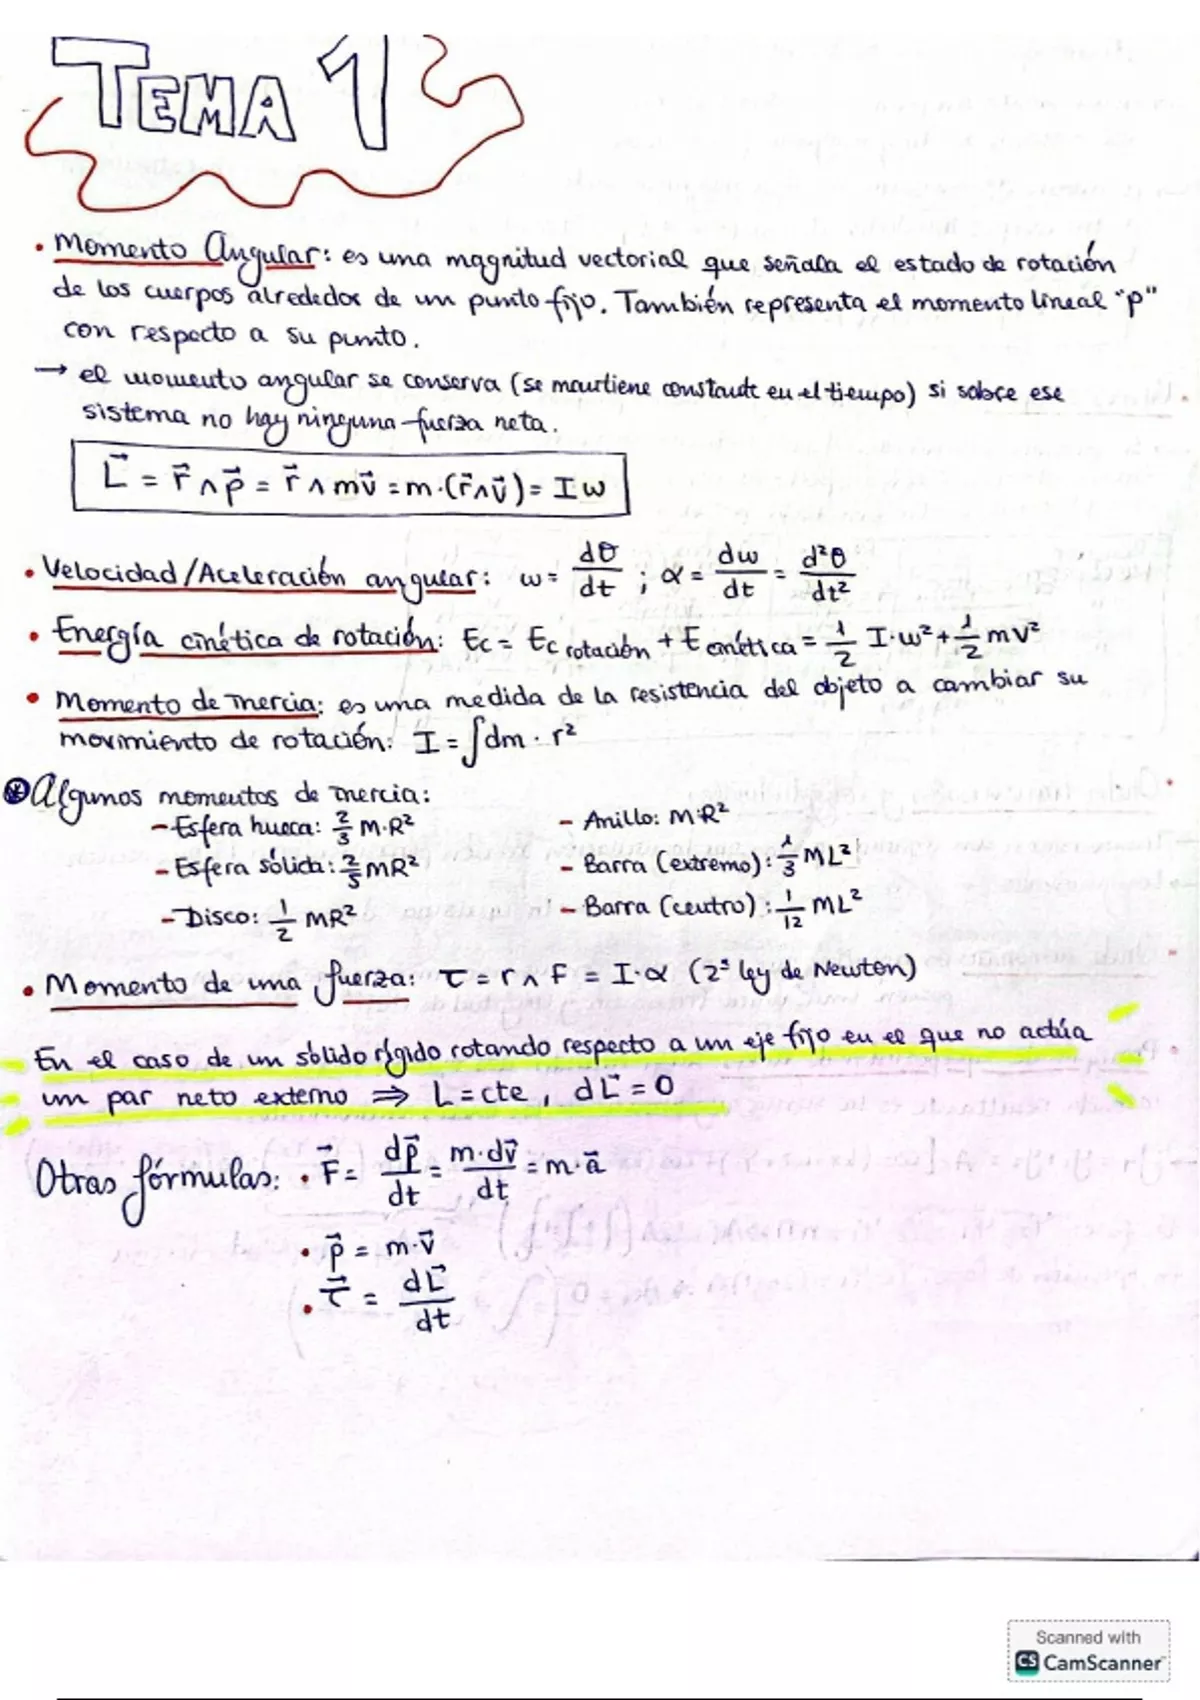 TEMA 1
• Momento Angular: es una magnitud vectorial que señala el estado de rotación
de los cuerpos alrededor de un punto fijo. También representa el momento lineal "p"
con respecto a su punto.
→ el momento angular se conserva (se mantiene constante en el tiempo) si sobre ese
sistema no hay ninguna fuerza neta.
L⃗ = r⃗ ∧ p⃗ = r⃗ ∧ mv⃗ = m·(r⃗∧v⃗) = Iω
• Velocidad/Aceleración angular: ω = dθ/dt ; α = dω/dt = d²θ/dt²
• Energía cinética de rotación: Ec = Ec rotación + E cinética = 1/2 I·ω² + 1/2 mv²
• Momento de inercia: es una medida de la resistencia del objeto a cambiar su
movimiento de rotación: I = ∫dm · r²
⊛ Algunos momentos de inercia:
- Esfera hueca: 2/3 M·R²
- Anillo: M·R²
- Esfera sólida: 2/5 MR²
- Barra (extremo): 1/3 ML²
- Disco: 1/2 MR²
- Barra (centro): 1/12 ML²
• Momento de una fuerza: τ = r ∧ F = I·α (2ª ley de Newton)
En el caso de un sólido rígido rotando respecto a un eje fijo en el que no actúa
un par neto externo ⇒ L = cte, dL⃗ = 0
Otras fórmulas: • F⃗ = dp⃗/dt = m·dv⃗/dt = m·a⃗
• p⃗ = m·v⃗
• τ⃗ = dL⃗/dt
Scanned with
CS CamScanner